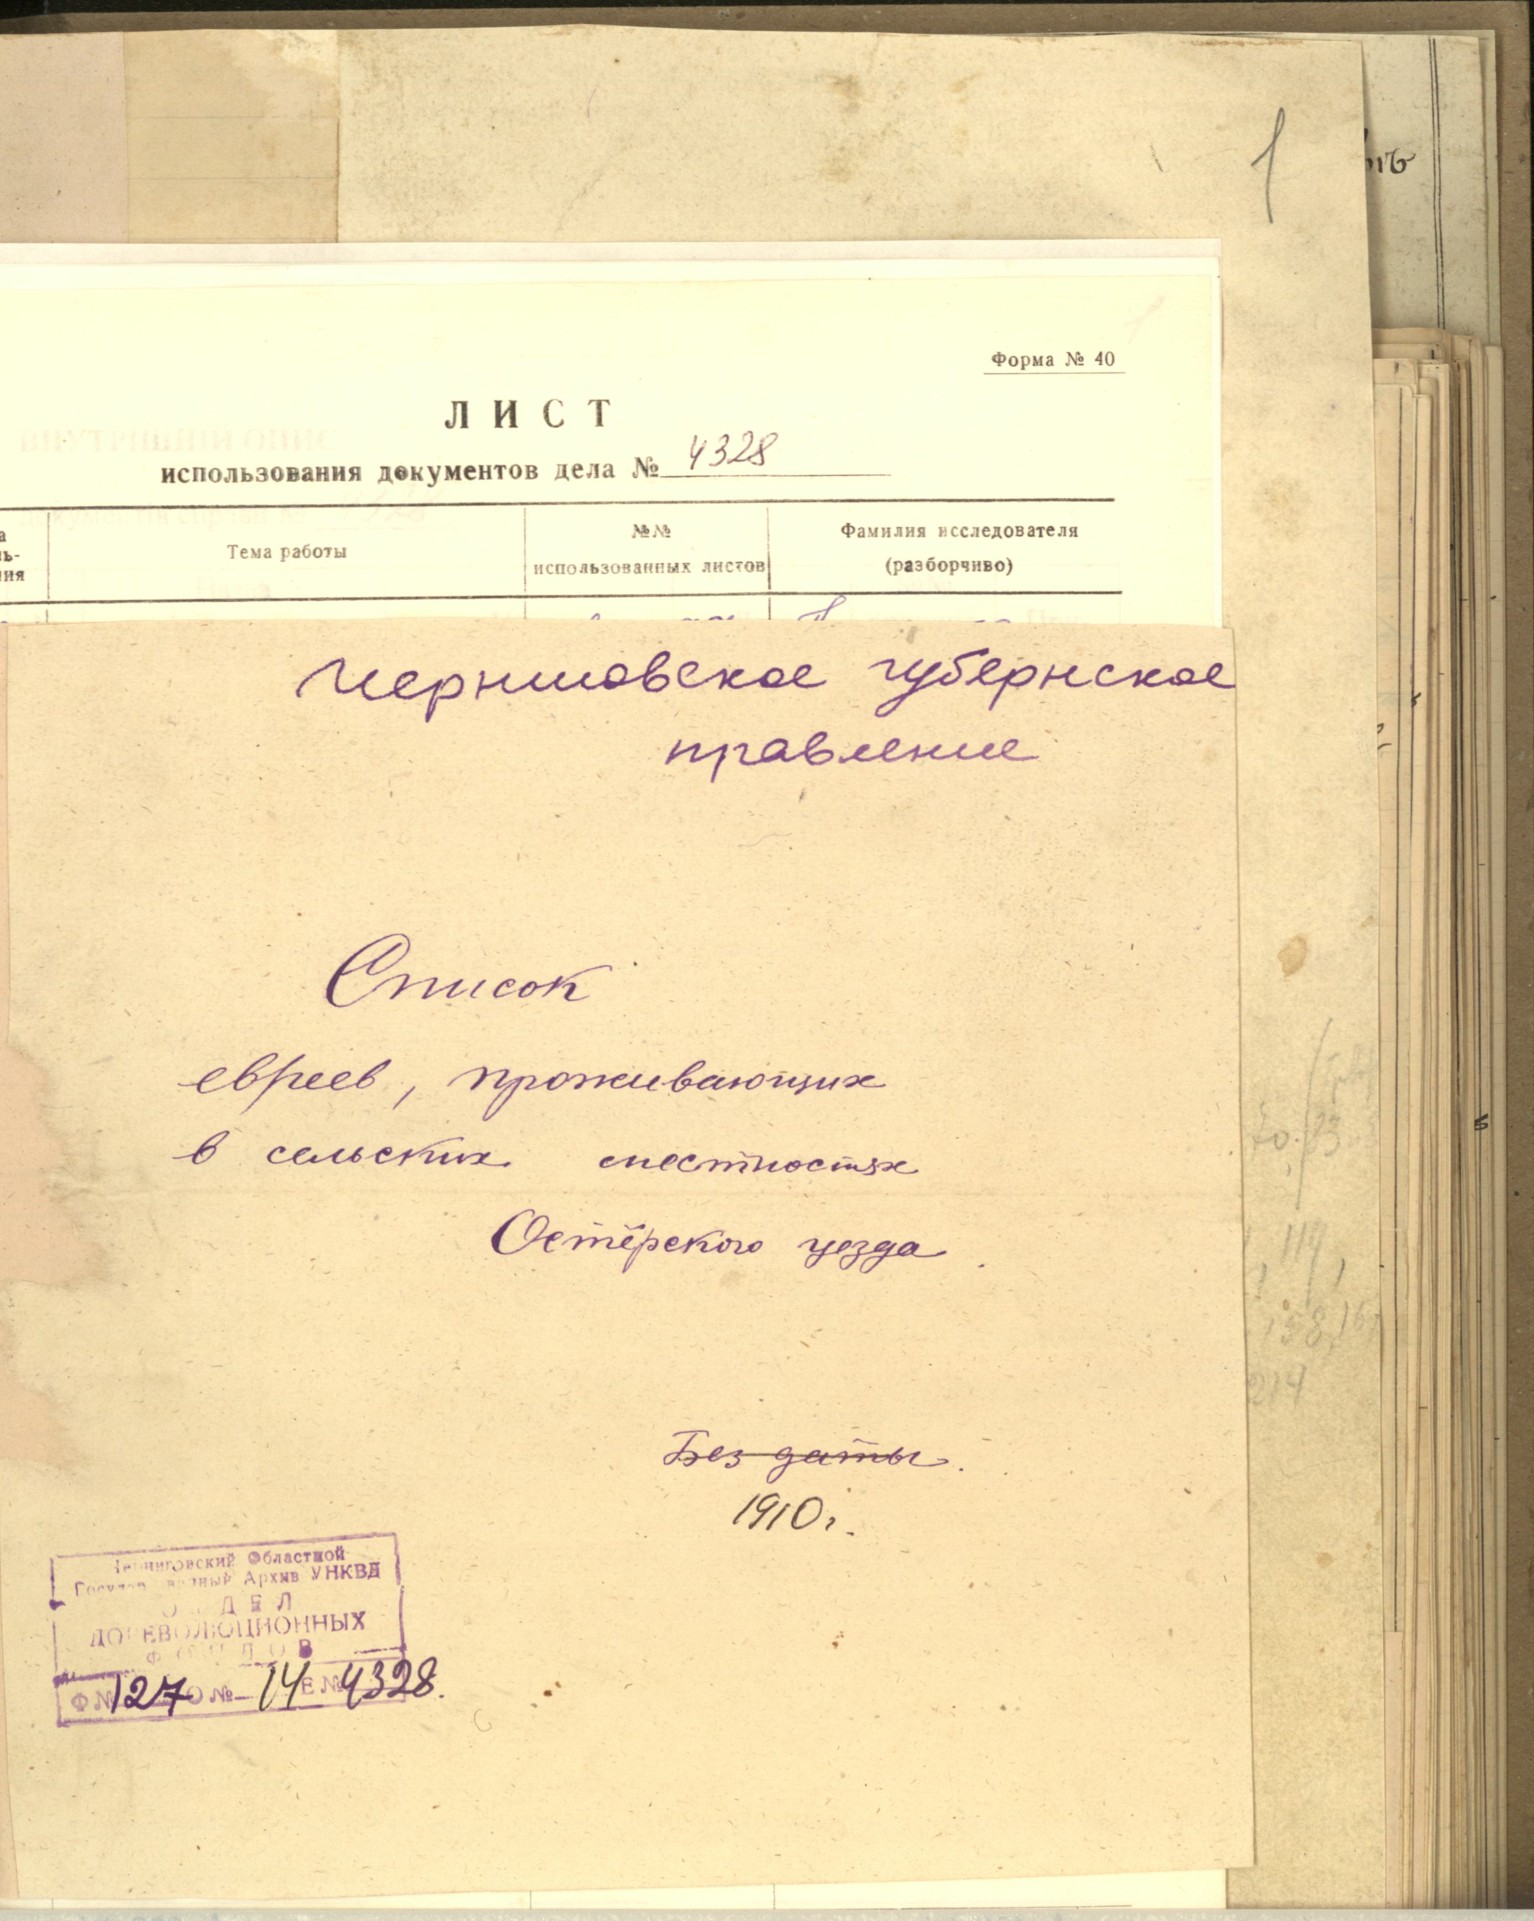 1
Форма № 40
ЛИСТ
использования документов дела № 4328
Тема работы
№№
использованных листов
Фамилия исследователя
(разборчиво)
Черниговское губернское
правление
Список
евреев, проживающих
в сельских местностях
Остёрского уезда.
Без даты.
1910 г.
Черниговский Областной
Государственный Архив УНКВД
ОТДЕЛ
ДОРЕВОЛЮЦИОННЫХ
ФОНДОВ
Ф № 127 О № 14 Е № 4328.